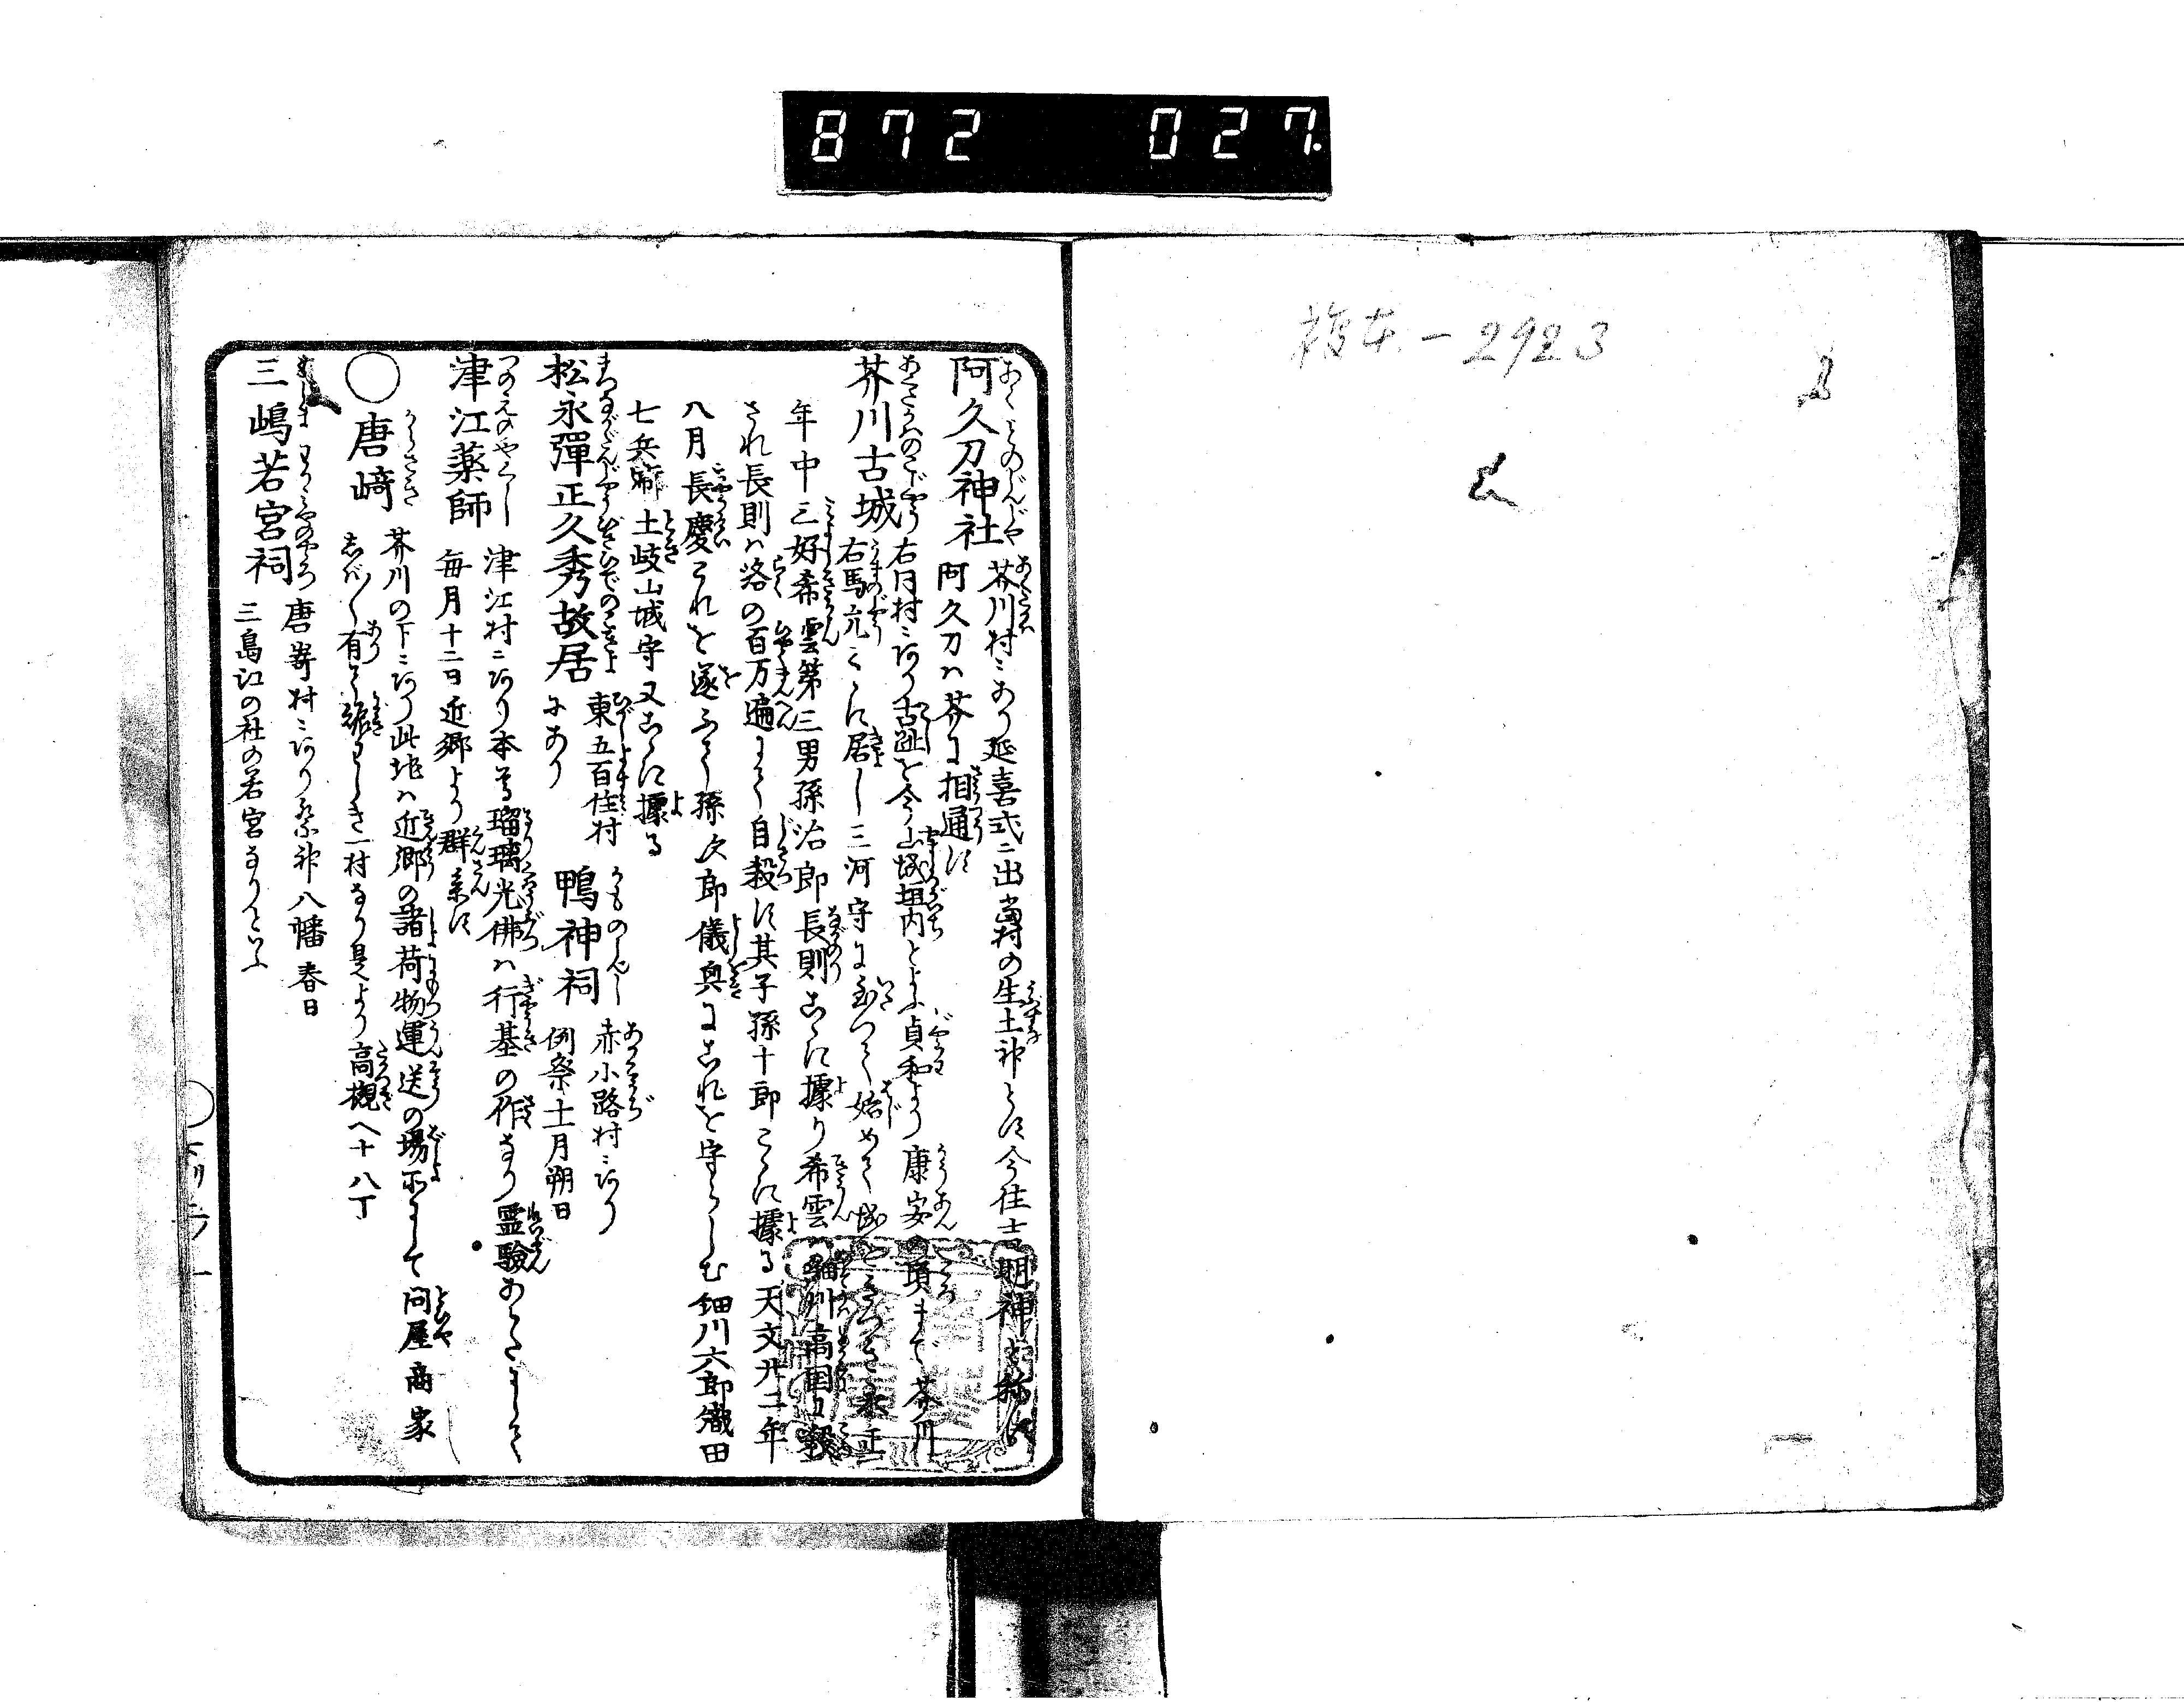 872 027.
複本-2923
阿久刀神社 芥川村ニあり延喜式ニ出当村の生土神とす今住吉明神と称す
阿久刀ハ芥に相通ず
芥川古城 右同村ニあり古趾を今城垣内とよふ貞和より康安の頃まで芥川
右馬允こゝに居し三河守に至つて始めて城をきづき永正
年中三好希雲第三男孫治郎長則こゝに據り希雲細川高国に殺
され長則ハ洛の百万遍にて自殺す其子孫十郎こゝに據る天文廿二年
八月長慶これを逐ふて孫次郎儀興にこれを守らしむ細川六郎織田
七兵衛土岐山城守又こゝに據る
松永彈正久秀故居 東五百住村
にあり
鴨神祠 赤小路村ニあり
例祭十一月朔日
津江薬師 津江村ニあり本尊瑠璃光佛ハ行基の作なり霊験あらたにして
毎月十二日近郷より群参す
○唐﨑 芥川の下ニあり此地ハ近郷の諸荷物運送の場所にして問屋商家
しば〳〵有て賑わしき一村なり是より高槻へ十八丁
三嶋若宮祠 唐嵜村ニあり祭神八幡春日
三島江の社の若宮なりといふ